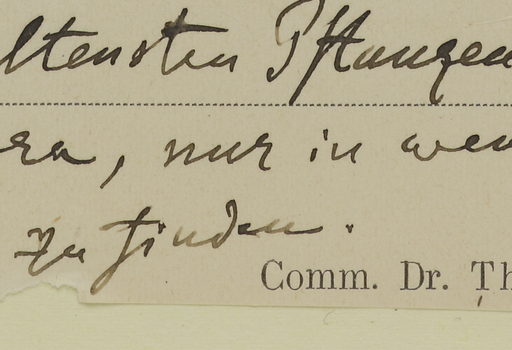 ltensten Pflanzen
ra, nur in wen
zu finden.
Comm. Dr. Th